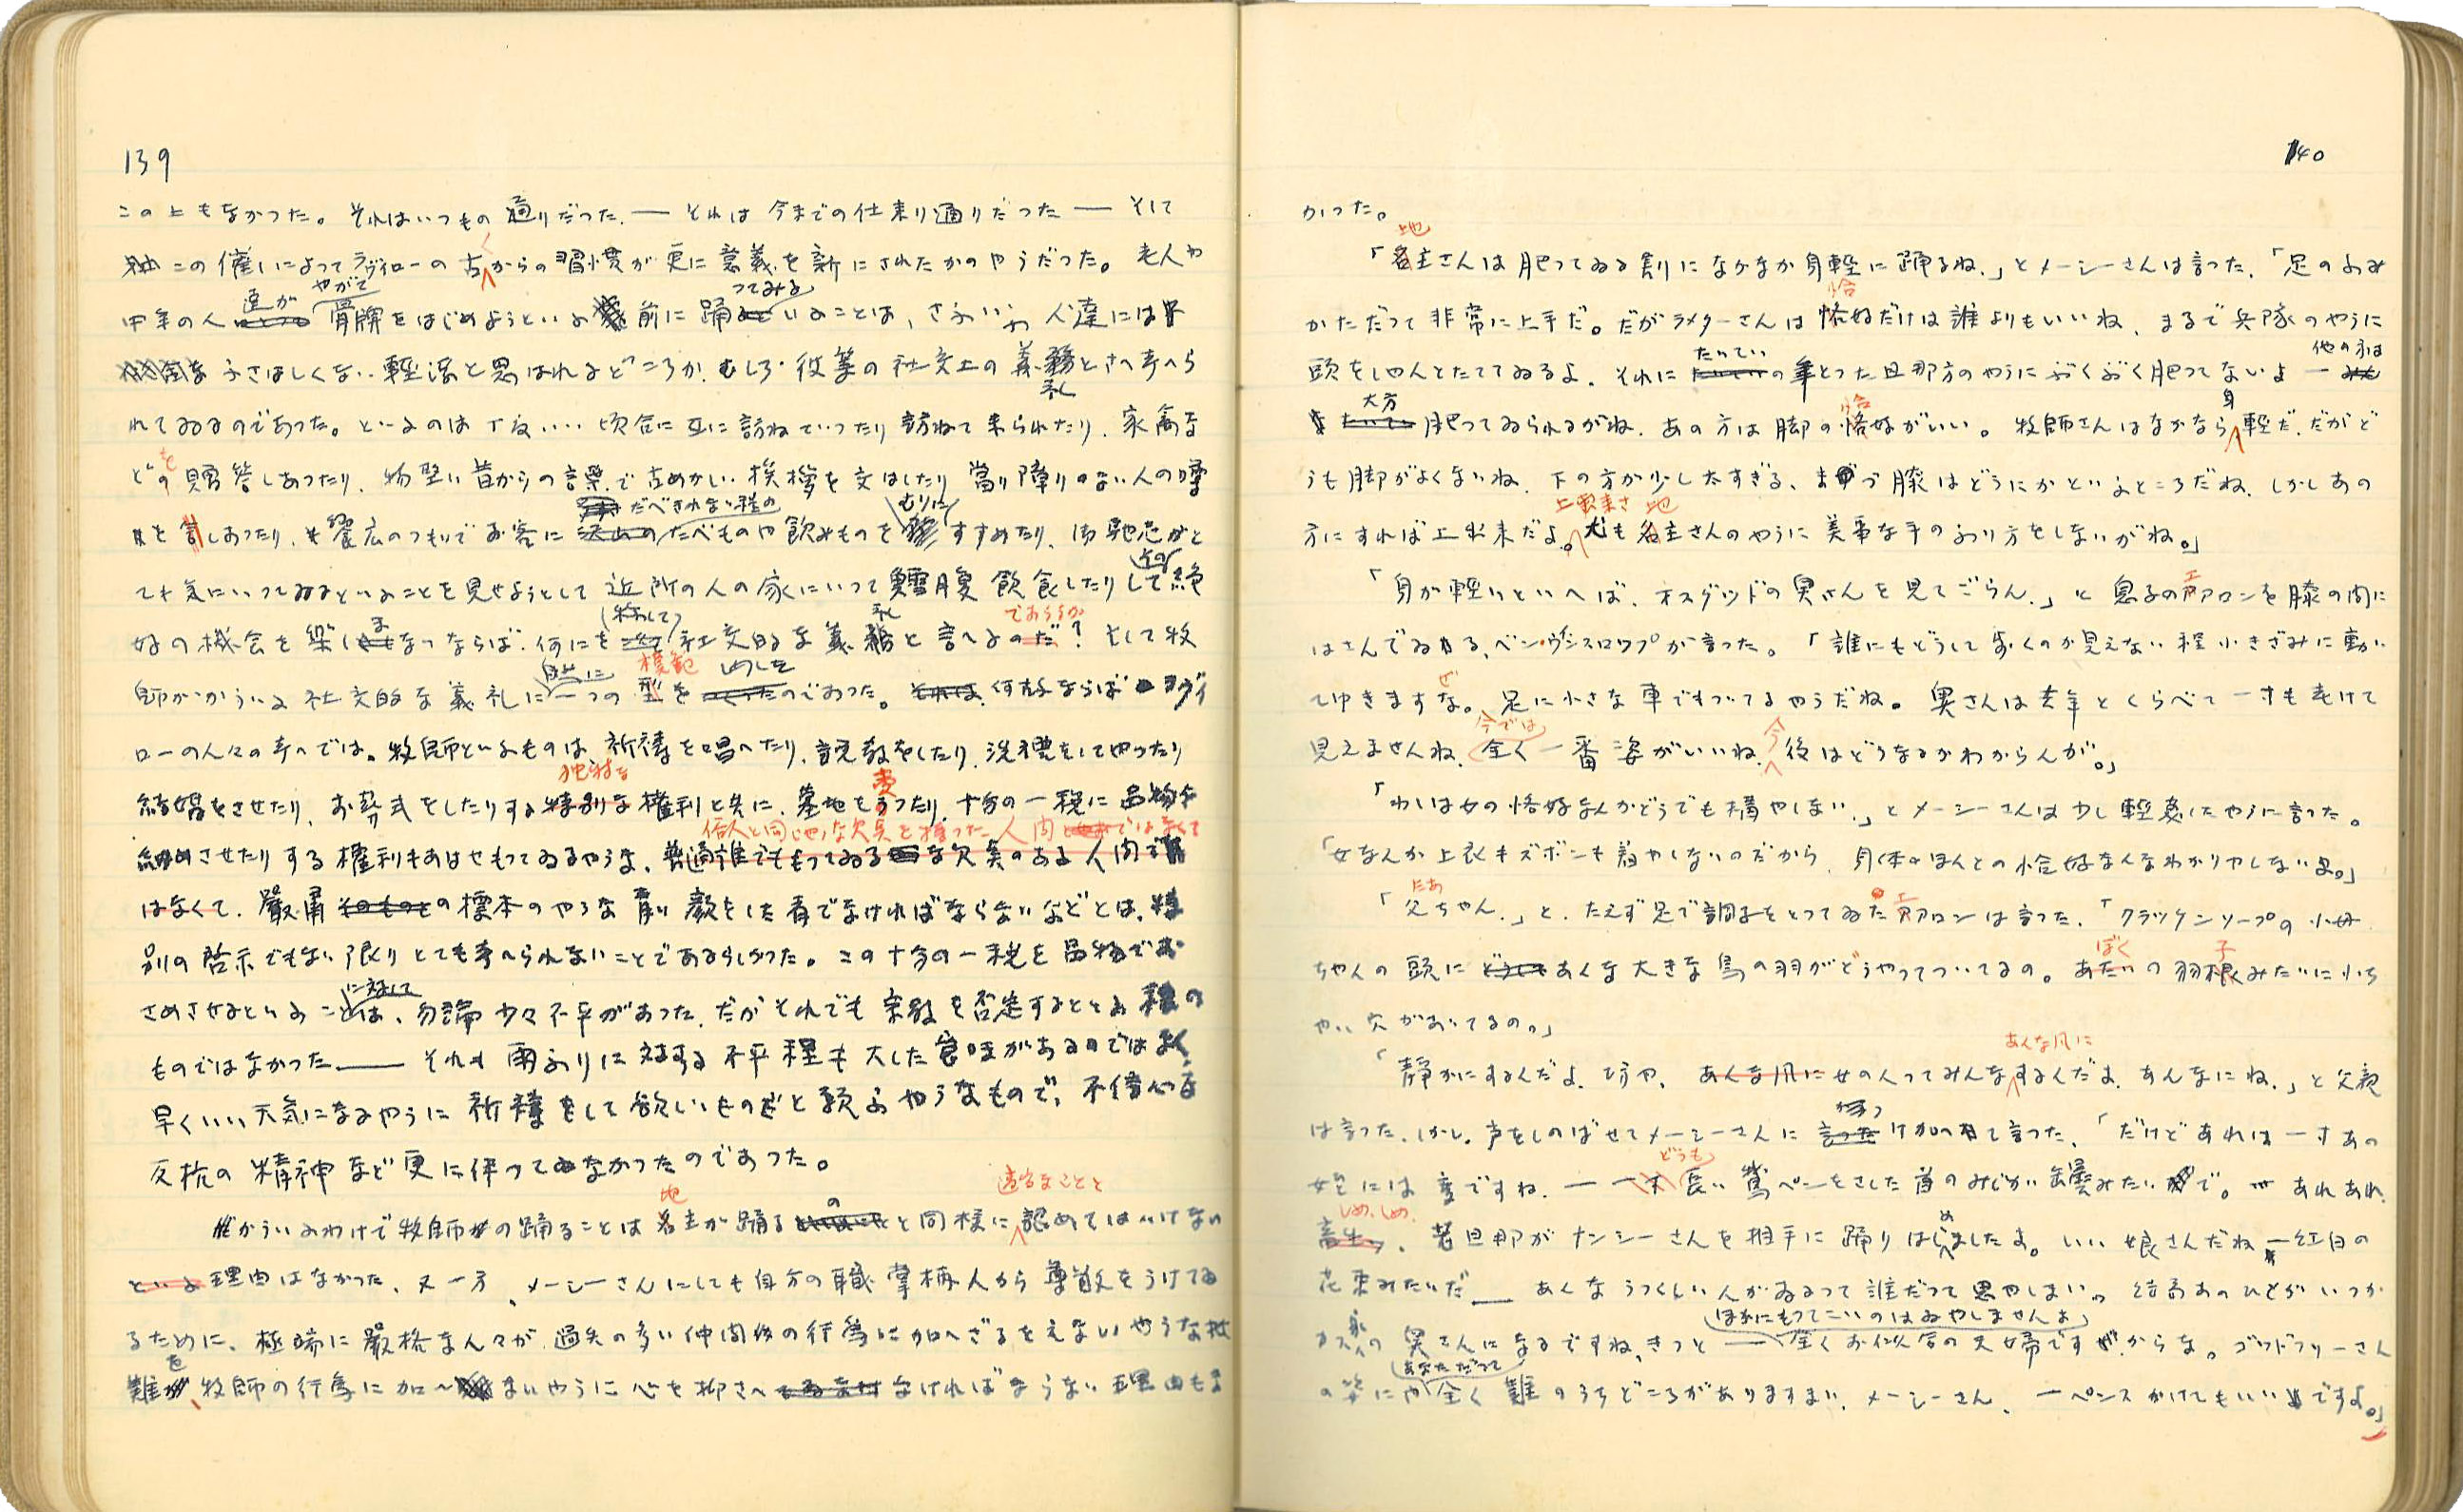 139
この上もなかつた。それはいつもの通りだつた、── それは今までの仕来り通りだつた ── そして
この催しによつてラヴィローの古くからの習慣が更に意義を新にされたかのやうだつた。老人や
中年の人達がやがて骨牌をはじめようといふ前に踊つてみるといふことは、さふいふ人達には
ふさはしくない軽浮と思はれるどころか、むしろ彼等の社交上の義礼とさへ考へら
れてゐるのであつた。といふのは丁度いい頃合に互に訪ねていつたり訪ねて来られたり、家禽な
どを贈答しあつたり、物堅い昔からの言葉で古めかしい挨拶を交はしたり当り障りのない人の噂
をしあつたり、饗応のつもりでお客にたべきれない程のたべものや飲みものをむりにすすめたり、御馳走がと
ても気にいつてゐるといふことを見せようとして近所の人の家にいつて鱈腹飲食したりして、この絶
好の機会を楽しまなかつたならば、何を称して社交的な義礼と言へるのであらうか? そして牧
師がかういふ社交的な義礼に自然に一つの模範を示したのであつた。何故ならばラヴィ
ローの人々の考へでは。牧師といふものは、祈祷を唱へたり、説教をしたり、洗礼をしてやつたり
結婚をさせたり、お葬式をしたりする独特な権利と共に、墓地を売つたり、十分の一税に品物を
納めさせたりする権利もあはせもつてゐるやうな、俗人と同じやうな欠点を持つた人間ではなくて
厳粛の標本のやうな青い顔をした者でなければならないなどとは、特
別の啓示でもない限りとても考へられないことであるらしかつた。この十分の一税を品物でお
さめさせるといふことに対しては、勿論少々不平があつた、だがそれでも宗教を否定するといふ種の
ものではなかつた ── それも雨ふりに対する不平程も大した意味があるのではなく、
早くいい天気になるやうに祈祷をして欲しいものだと願ふやうなもので、不信心な
反抗の精神など更に伴つてゐなかつたのであつた。
かういふわけで牧師の踊ることは地主が踊るのと同様に適当なことと認めてはいけない
理由はなかつた、又一方、メーシーさんにしても自分の職掌柄人から尊敬をうけてゐ
るために、極端に厳格な人々が過失の多い仲間の行為に加へざるをえないやうな批
難を、牧師の行為に加へないやうに心を抑さへなければならない理由もな
140
かつた。
「地主さんは肥つてゐる割になかなか身軽に踊るね。」とメーシーさんは言つた、「足のふみ
かただつて非常に上手だ。だがラメターさんは恰好だけは誰よりもいいね、まるで兵隊のやうに
頭をしやんとたててゐるよ、それにたいていの年とつた旦那方のやうにぶくぶく肥つてないよ ─ 他の方は
大方肥つてゐられるがね、あの方は脚の恰好がいい。牧師さんはなかなら身軽だ、だがど
うも脚がよくないね、下の方が少し太すぎる、まづ膝はどうにかといふところだね、しかしあの
方にすれば上出来だよ。尤も地主さんのやうに美事な手のふり方をしないがね。」
「身が軽いといへば、オスグッドの奥さんを見てごらん。」と息子のエアロンを膝の間に
はさんでゐる、ベン・ウィンスロップが言つた。「誰にもどうして歩くのか見えない程小きざみに動い
てゆきますぜ。足に小さな車でもついてるやうだね。奥さんは去年とくらべて一寸も老けて
見えませんね、今では全く一番姿がいいね、今後はどうなるかわからんが。」
「わしは女の恰好なんかどうでも構やしない。」とメーシーさんは少し軽蔑したやうに言つた。
「女なんか上衣もズボンも着やしないのだから、身体のほんとの恰好なんなわかりやしないよ。」
「父ちやん。」と、たえず足で調子をとつてゐたエアロンは言つた、「クラッケンソープの小母
ちやんの頭にあんな大きな鳥の羽がどうやつてついてるの。ぼくの羽子みたいに小ち
やい穴があいてるの。」
「静かにするんだよ、坊や、女の人つてみんなあんな風にするんだよ、あんなにね。」と父親
は言つた、しかし、声をしのばせてメーシーさんに向つてつけ加へて言つた、「だけどあれは一寸あの
姥には変ですね、── どうも長い鵞ペンをさした首のみじかい罎みたいで。── あれあれ、
しめ、しめ、若旦那がナンシーさんを相手に踊りはじめましたよ。いい娘さんだね ─ 紅白の
花束みたいだ ── あんなうつくしい人がゐるつて誰だつて思やしまい。結局あのひとがいつか
カス家の奥さんになるですね、きつと ── ほかにもつてこいのはゐやしませんよ 全くお似合の夫婦ですからな。ゴッドフリーさん
の姿にやあなただつて全く難のうちどころがありますまい、メーシーさん、一ペンスかけてもいいですよ。」